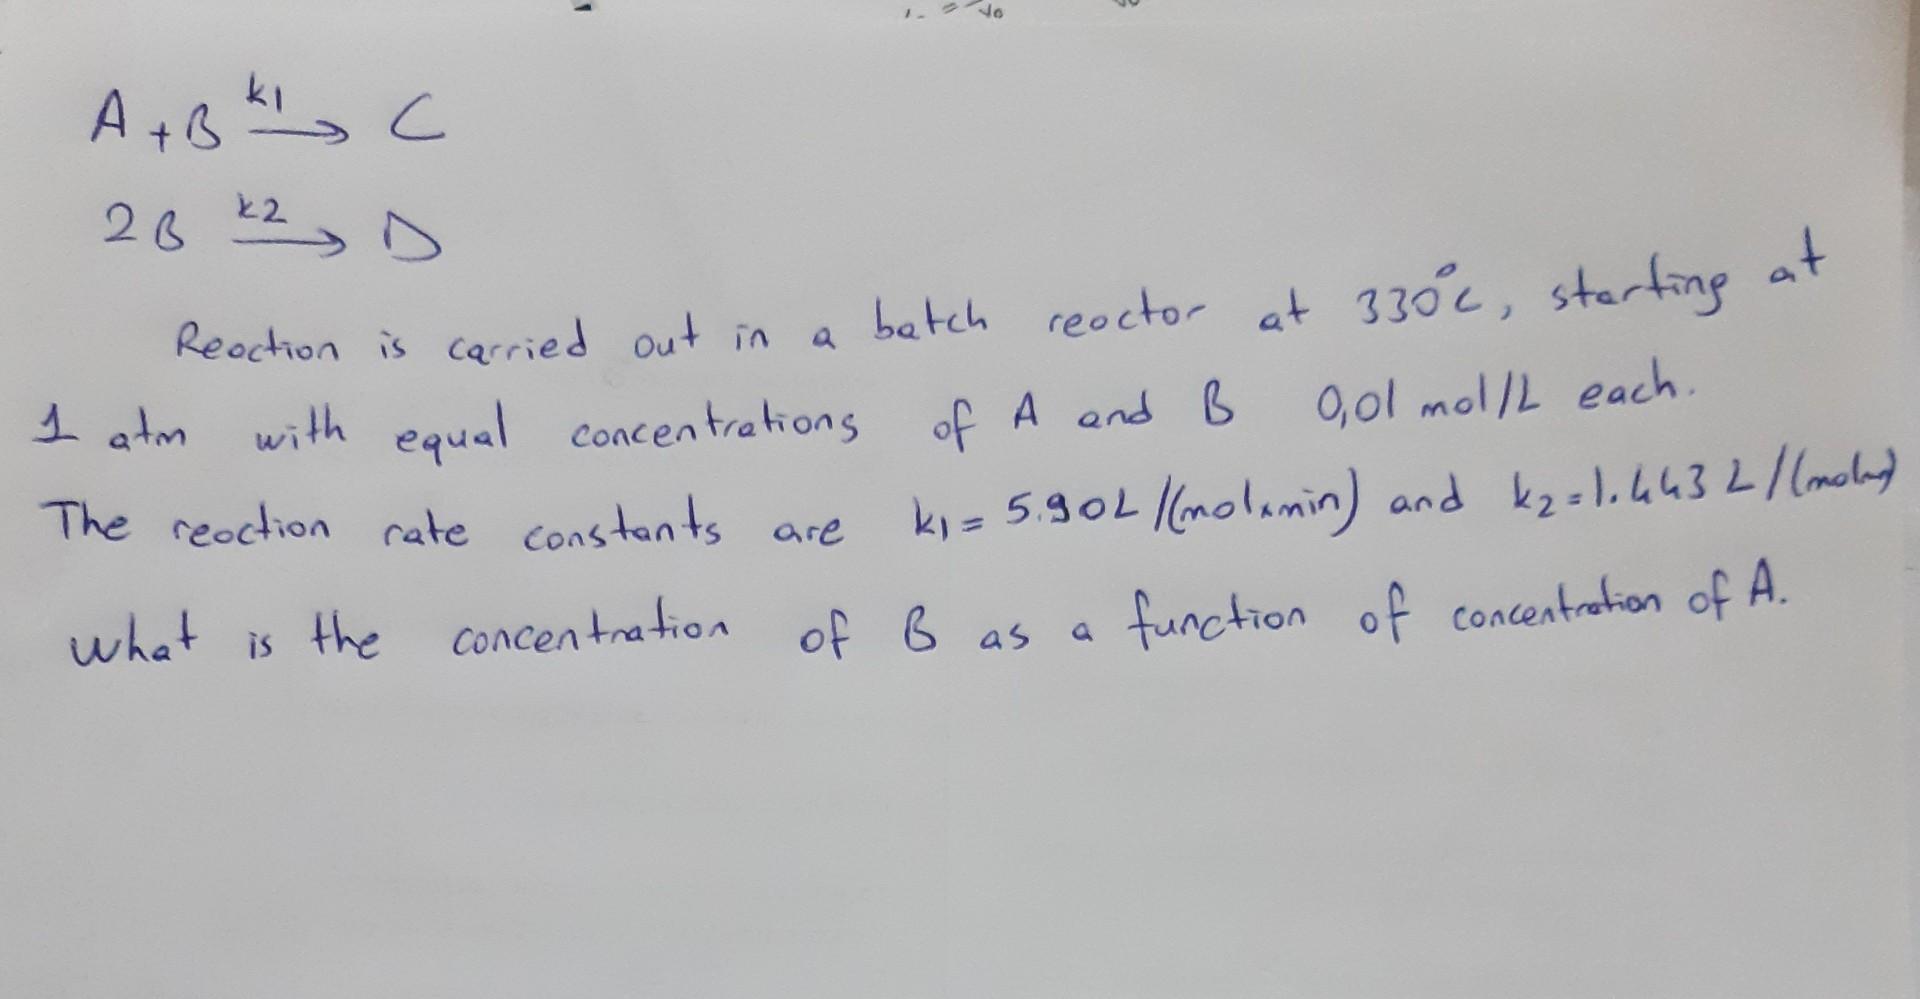 A + B k1 → C
2B k2 → D
Reaction is carried out in a batch reactor at 330°C, starting at
1 atm with equal concentrations of A and B 0,01 mol/L each.
The reaction rate constants are k1 = 5.90L/(molxmin) and k2 = 1.443 L/(mol
what is the concentration of B as a function of concentration of A.